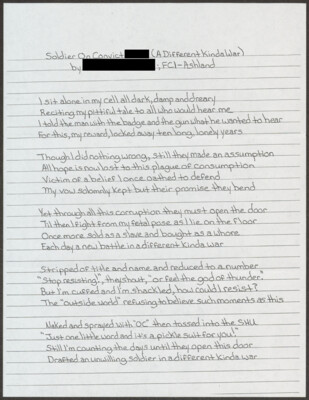 Soldier On Convict (A Different Kinda War)
by ; FCI-Ashland
I sit alone in my cell all dark, damp and dreary
Reciting my pittiful tale to all who would hear me
I told the man with the badge and the gun what he wanted to hear
For this, my reward, locked away ten long, lonely years
Though I did nothing wrong, still they made an assumption
All hope is now lost to this plague of consumption
Victim of a belief I once oathed to defend
My vow solemnly kept but their promise they bend
Yet through all this corruption they must open the door
Til then I fight from my fetal pose as I lie on the floor
Once more sold as a slave and bought as a whore
Each day a new battle in a different kinda war
Stripped of title and name and reduced to a number
"Stop resisting!", they shout, "or feel the god of thunder."
But I'm cuffed and I'm shackled, how could I resist?
The "outside world" refusing to believe such moments as this
Naked and sprayed with "OC" then tossed into the SHU
"Just one little word and it's a pickle suit for you!"
Still I'm counting the days until they open this door
Drafted an unwilling soldier in a different kinda war